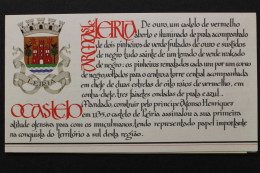 ARMAS DE
LEIRIA
De ouro, um castelo de vermelho
aberto e iluminado de prata, acompanhado
de dois pinheiros de verde frutados de ouro e sustidos
de negro tudo sainte de um terrado de verde realçado
de negro: os pinheiros rematados cada um por um corvo
de negro voltados para o centro a torre central acompanhada
em chefe de duas estrelas de oito raios de vermelho, em
LEIRIA
OCastelo
Mandado construir pelo príncipe Afonso Henriques
em 1135, o castelo de Leiria assinalou a sua primeira
atitude ofensiva para com os muçulmanos tendo representado papel importante
na conquista do território a sul desta região.